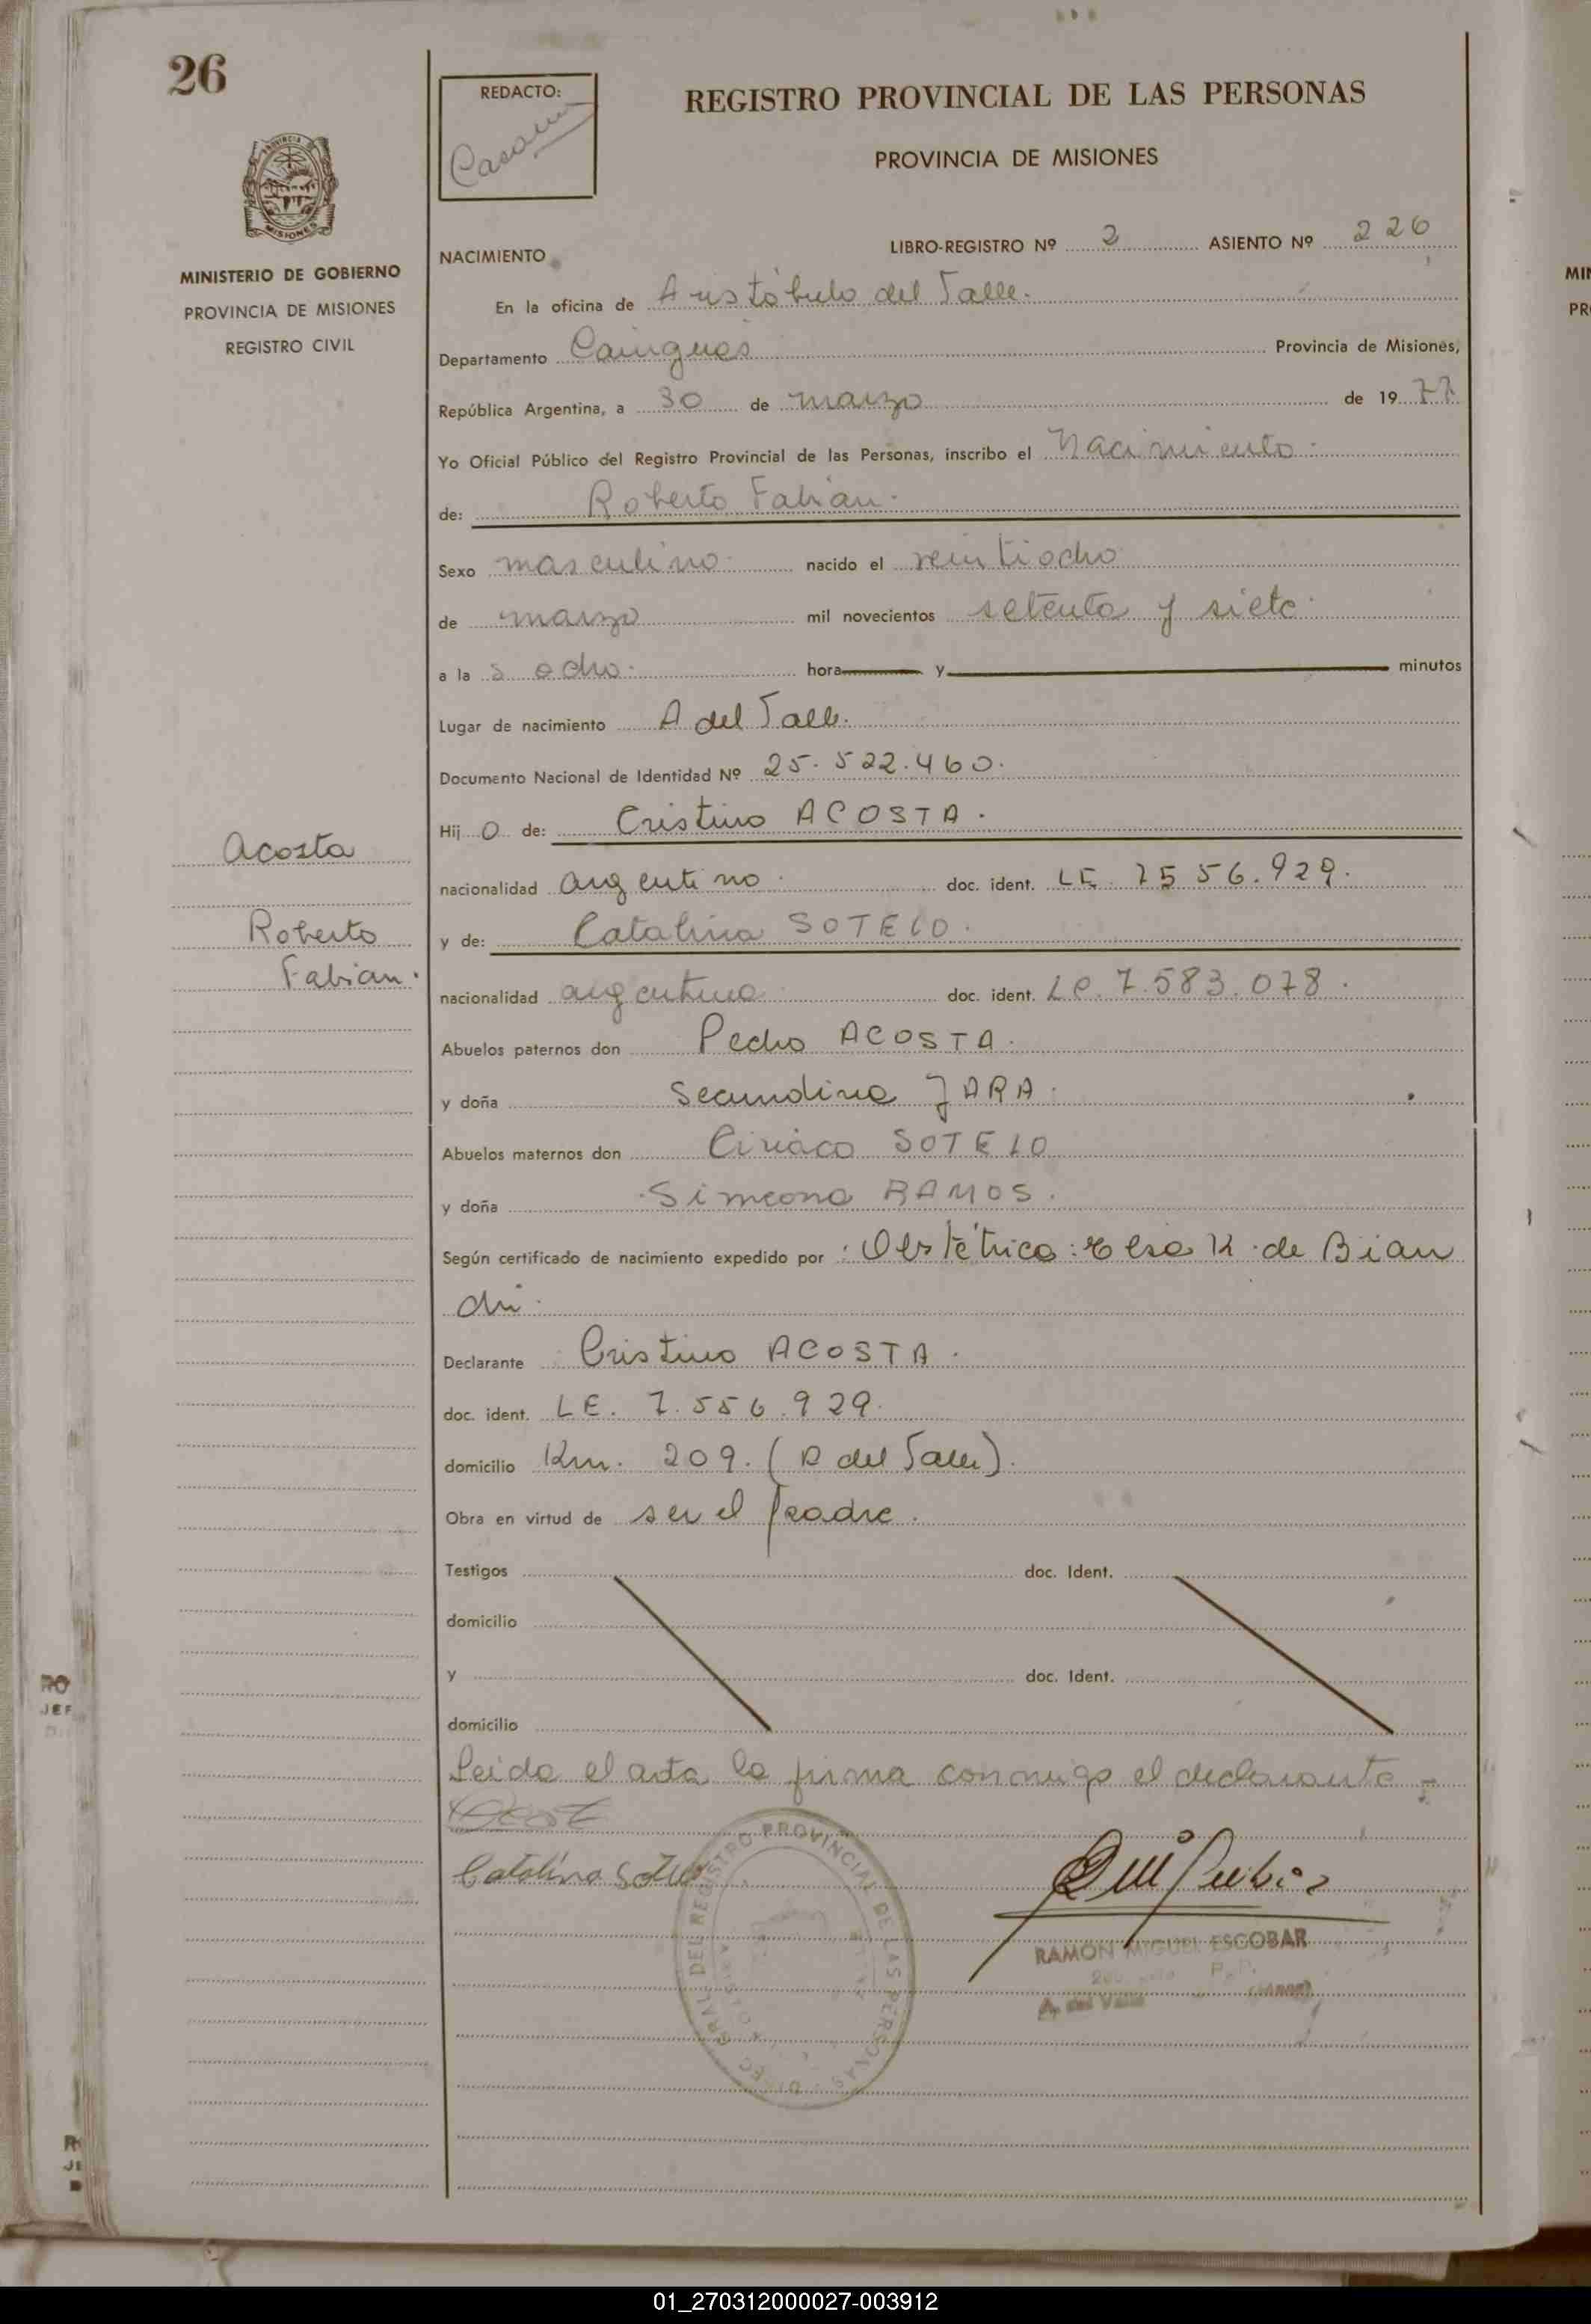 26
REDACTO:
REGISTRO PROVINCIAL DE LAS PERSONAS
PROVINCIA DE MISIONES
MINISTERIO DE GOBIERNO
PROVINCIA DE MISIONES
REGISTRO CIVIL
NACIMIENTO
LIBRO-REGISTRO Nº 2 ASIENTO Nº 226
En la oficina de Aristóbulo del Valle.
Departamento Cainguás Provincia de Misiones,
República Argentina, a 30 de marzo de 1977
Yo Oficial Público del Registro Provincial de las Personas, inscribo el Nacimiento
de: Roberto Fabian.
Sexo masculino nacido el veintiocho
de marzo mil novecientos setenta y siete
a la s ocho. hora y minutos
Lugar de nacimiento A del Valle.
Documento Nacional de Identidad Nº 25.522.460.
Hij o de: Cristino ACOSTA.
Acosta
nacionalidad argentino doc. ident. LE. 7556.929.
Roberto
y de: Catalina SOTELO.
Fabian.
nacionalidad argentina doc. ident. LC. 7.583.078.
Abuelos paternos don Pedro ACOSTA.
y doña Secundina JARA.
Abuelos maternos don Ciriaco SOTELO
y doña Simeona RAMOS.
Según certificado de nacimiento expedido por : Obstétrica: Elsa K. de Bian
dri.
Declarante Cristino ACOSTA.
doc. ident. LE. 7.556.929.
domicilio Km. 209. (A del Valle).
Obra en virtud de ser el Padre.
Testigos doc. Ident.
domicilio
y doc. Ident.
domicilio
Leida el acta la firma conmigo el declarante
Catalina Sotelo
DIREC GRAL DEL REGISTRO PROVINCIAL DE LAS PERSONAS
RAMON MIGUEL ESCOBAR
A. del Valle (Mnes)
01_270312000027-003912